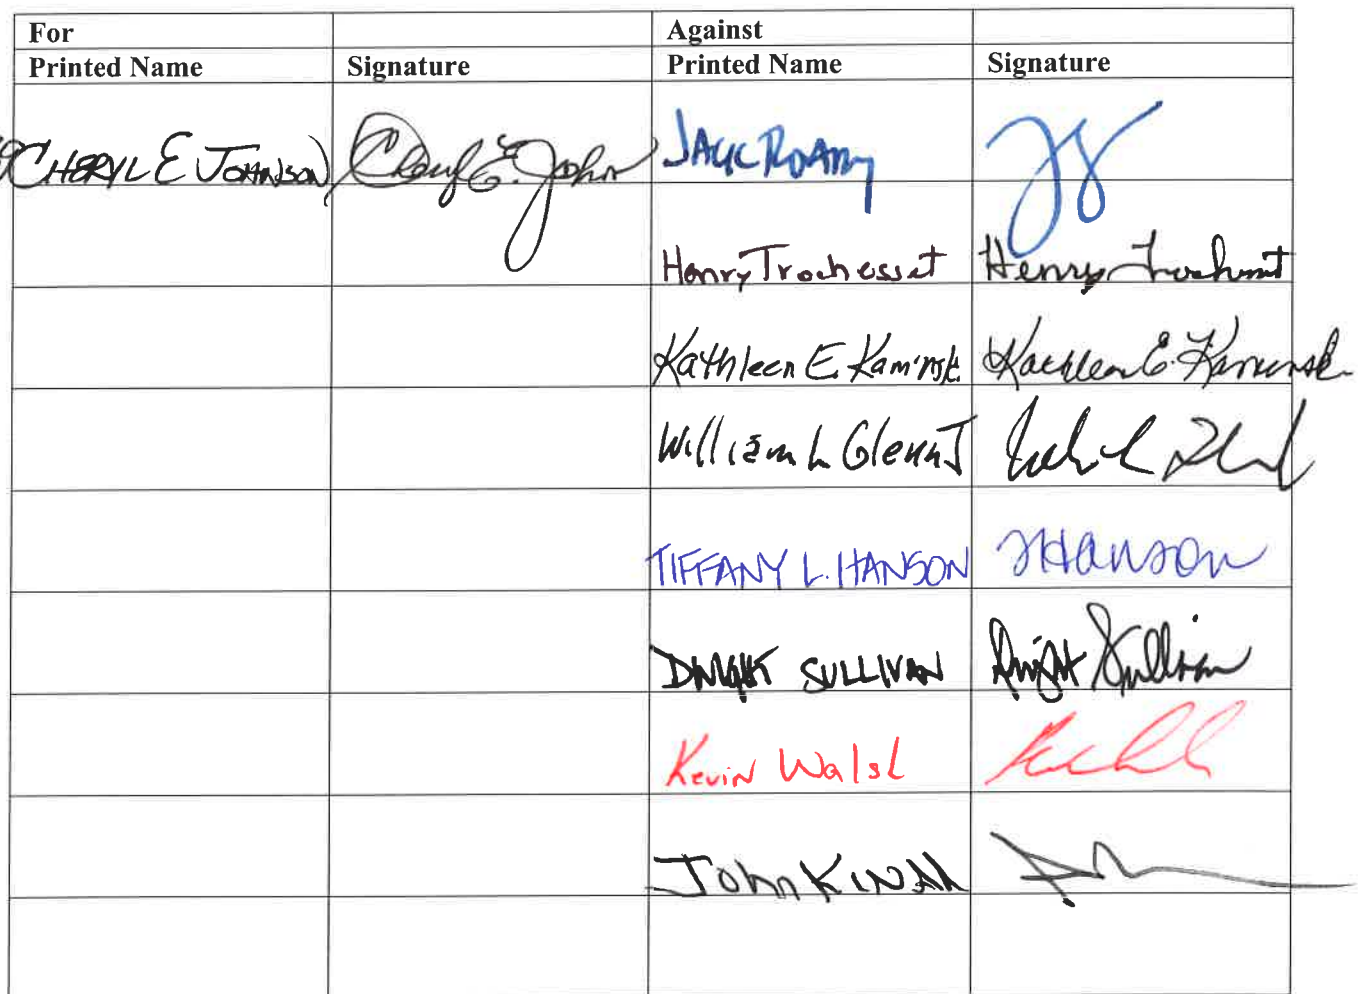 For Against
Printed Name Signature Printed Name Signature
CHERYL E JOHNSON Cheryl E. John JACK ROADY
Henry Trochesset Henry Trochesset
Kathleen E. Kaminski Kathleen E. Kaminski
William L Glenn J
TIFFANY L. HANSON THanson
DWIGHT SULLIVAN Dwight Sullivan
Kevin Walsh
John KINARD